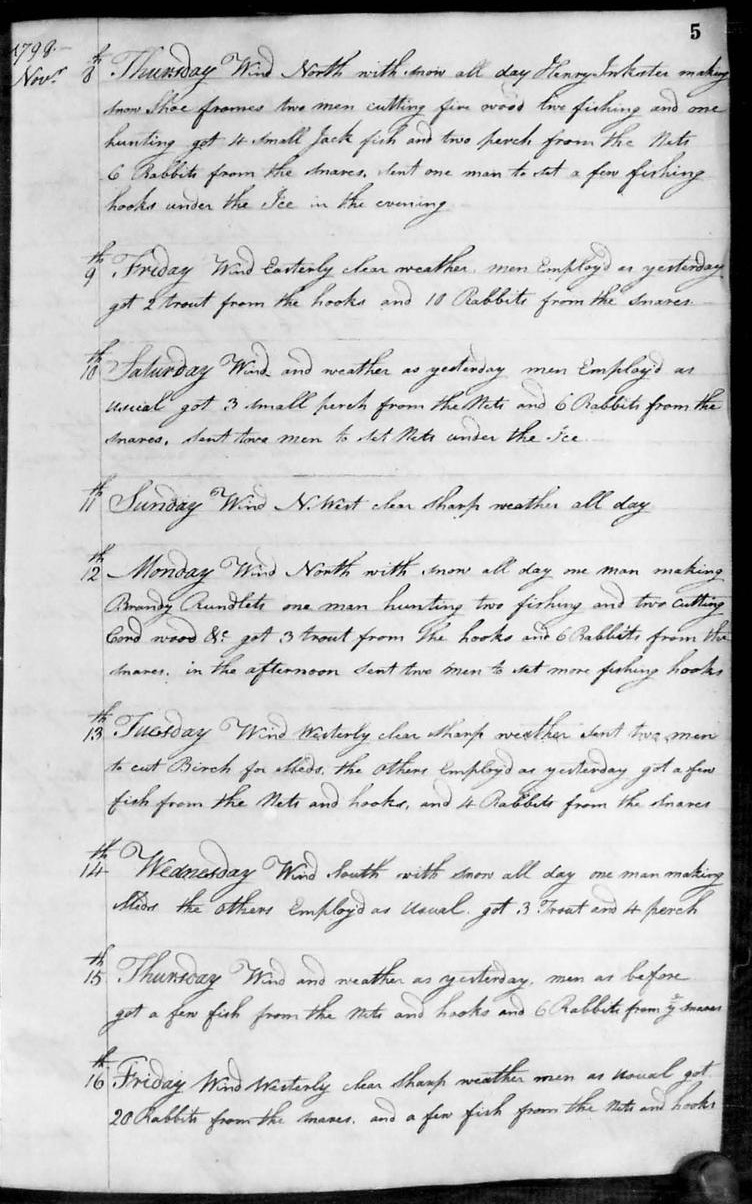 5
1798
Novr 8th Thursday Wind North with snow all day Henry Inkster making
snow Shoe frames two men cutting fire wood two fishing and one
hunting got 4 small Jack fish and two perch from the Nets
6 Rabbits from the snares. sent one man to set a few fishing
hooks under the Ice in the evening
9th Friday Wind Easterly clear weather. men Employ'd as yesterday
got 2 trout from the hooks and 10 Rabbits from the snares
10th Saturday Wind and weather as yesterday men Employ'd as
usual got 3 small perch from the Nets and 6 Rabbits from the
snares, sent two men to set Nets under the Ice
11th Sunday Wind N.West clear sharp weather all day
12th Monday Wind North with snow all day one man making
Brandy Rundlets one man hunting two fishing and two cutting
Cord wood &c got 3 trout from the hooks and 6 Rabbits from the
snares. in the afternoon sent two men to set more fishing hooks
13th Tuesday Wind Westerly clear sharp weather sent two men
to cut Birch for Sleds, the others Employ'd as yesterday got a few
fish from the Nets and hooks, and 4 Rabbits from the snares
14th Wednesday Wind South with snow all day one man making
Sleds the others Employ'd as usual. got 3 Trout and 4 perch
15th Thursday Wind and weather as yesterday. men as before
got a few fish from the Nets and hooks and 6 Rabbits from ye snares
16th Friday Wind Westerly clear sharp weather men as usual got
20 Rabbits from the snares. and a few fish from the Nets and hooks